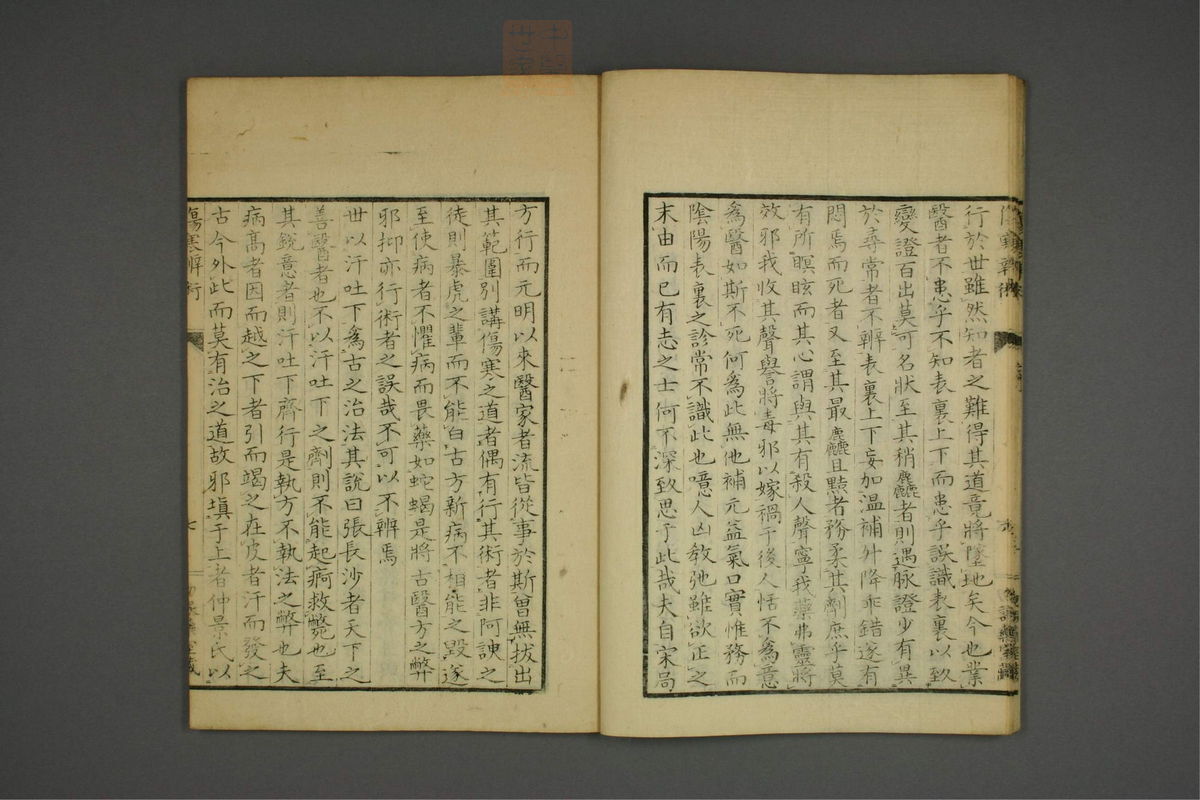 行於世雖然知者之難得其道竟將墜地矣今也業
醫者不患乎不知表裏上下而患乎誤識表裏以致
變證百出莫可名狀至其稍麤者則遇脉證少有異
於尋常者不辨表裏上下妄加溫補外降乖錯遂有
悶焉而死者又至其最麤且黠者務柔其劑庶乎莫
有所瞑眩而其心謂與其有殺人聲寧我藥弗靈將
效邪我收其聲譽將毒邪以嫁禍于後人恬不爲意
爲醫如斯不死何爲此無他補元益氣口實惟務而
陰陽表裏之診常不識此也噫人凶敎弛雖欲正之
末由而已有志之士何不深致思于此哉夫自宋局
方行而元明以來醫家者流皆從事於斯曾無拔出
其範圍別講傷寒之道者偶有行其術者非阿諛之
徒則暴虎之輩而不能白古方新病不相能之毀遂
至使病者不懼病而畏藥如蛇蝎是將古醫方之弊
邪抑亦行術者之誤哉不可以不辨焉
世以汗吐下爲古之治法其說曰張長沙者天下之
善醫者也不以汗吐下之劑則不能起痾救斃也至
其銳意者則汗吐下齊行是執方不執法之弊也夫
病高者因而越之下者引而竭之在皮者汗而發之
古今外此而莫有治之道故邪塡于上者仲景氏以
傷寒辨術
七